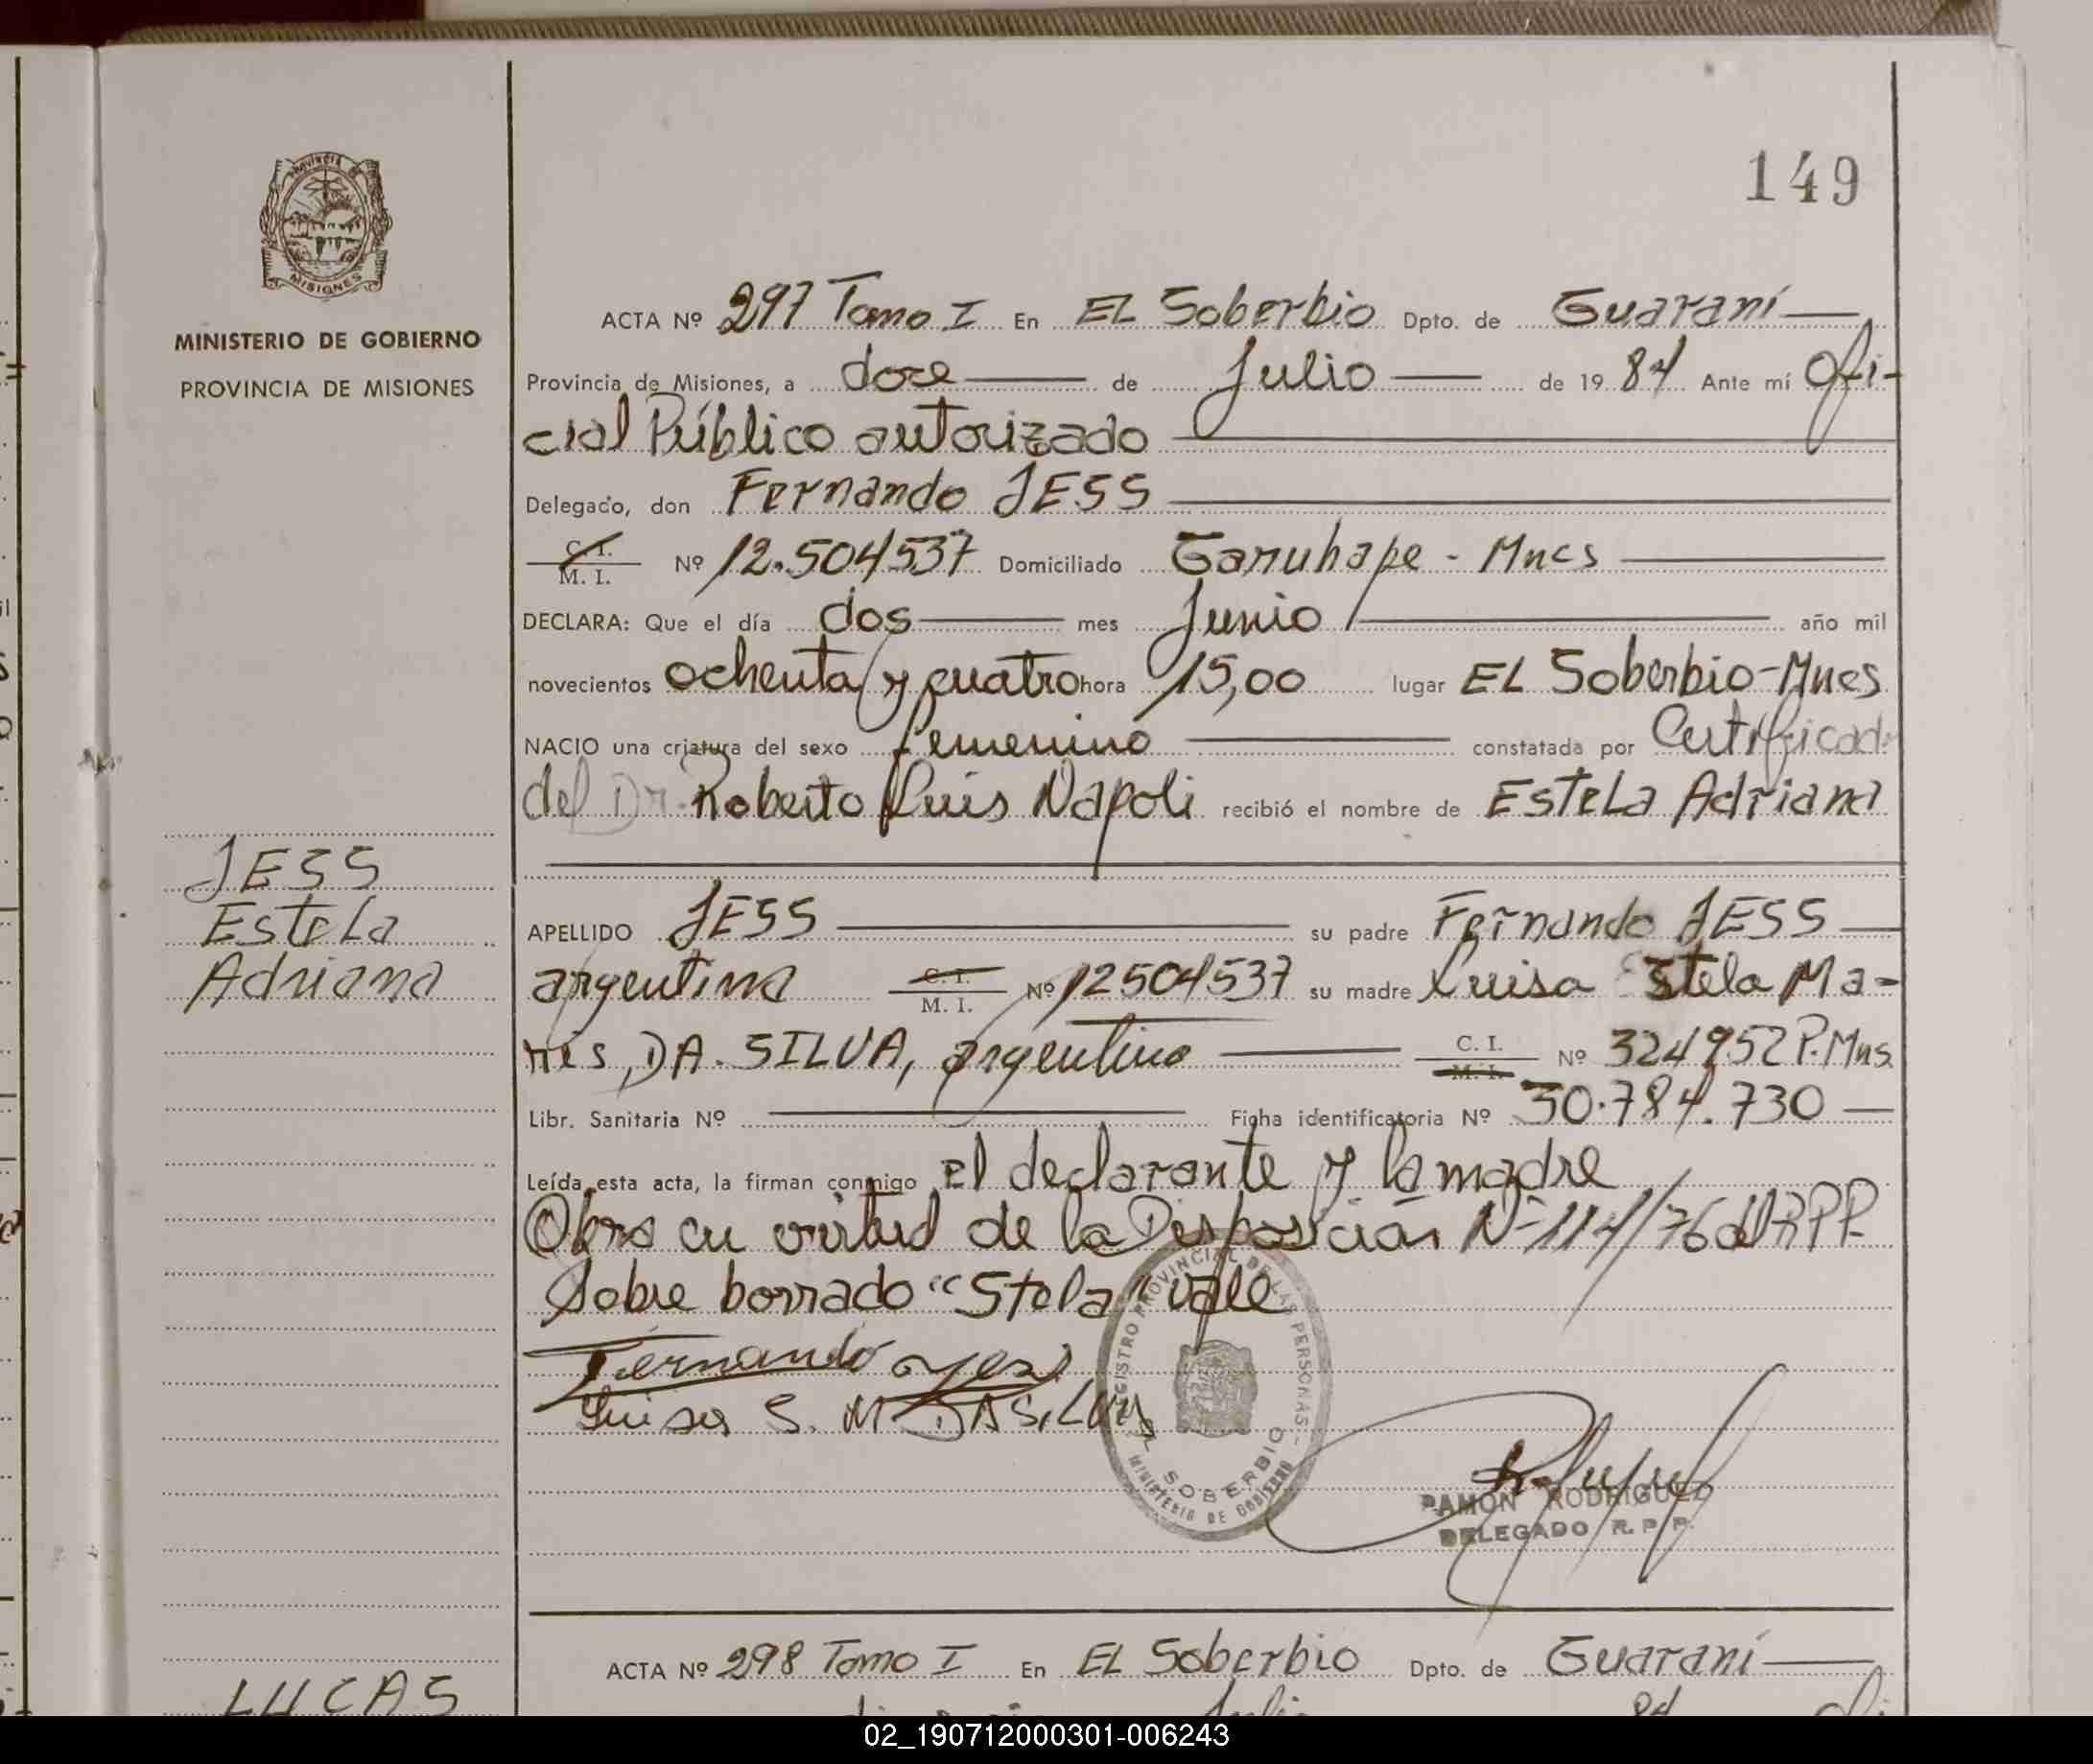 149
PROVINCIA DE
MISIONES
MINISTERIO DE GOBIERNO
PROVINCIA DE MISIONES
ACTA Nº 297 Tomo I En EL Soberbio Dpto. de Guaraní
Provincia de Misiones, a doce de Julio de 19 84 Ante mí Ofi-
cial Público autorizado
Delegado, don Fernando JESS
C. I.
M. I. Nº 12.504537 Domiciliado Garuhape - Mnes
DECLARA: Que el día dos mes Junio año mil
novecientos ochenta y cuatro hora 15,00 lugar EL Soberbio-Mnes
NACIO una criatura del sexo femenino constatada por Certificado
del Dr. Roberto Luis Napoli recibió el nombre de Estela Adriana
JESS
Estela
Adriana
APELLIDO JESS su padre Fernando JESS
argentina C. I. M. I. Nº 12504537 su madre Luisa Stela Ma-
ris, DA. SILVA, argentina C. I. M. I. Nº 324952 P. Mns.
Libr. Sanitaria Nº Ficha identificatoria Nº 30.784.730
Leída esta acta, la firman conmigo El declarante y la madre
Obra en virtud de la Disposición Nº 114/76 del RPP.
Sobre borrado "Stela" vale
Fernando Jess
Luisa S. M DASILVA
REGISTRO PROVINCIAL DE LAS PERSONAS
SOBERBIO
MINISTERIO DE GOBIERNO
RAMON RODRIGUEZ
DELEGADO R. P. P.
ACTA Nº 298 Tomo I En EL Soberbio Dpto. de Guaraní
LUCAS
02_190712000301-006243